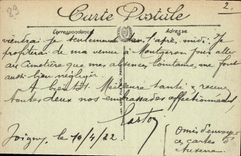 2
Carte Postale
Correspondance
viendrai seulement dans l'après midi. Je
profiterai de ma venue à Montgeron pour aller
au cimetière que mes absences, lointaines, me font
aussi bien négliger
A bientôt Meilleure santé, recevez
toutes deux nos embrassades affectionnées
Gaston
Joigny, le 10/4/22
Omis d'envoyer
ces cartes